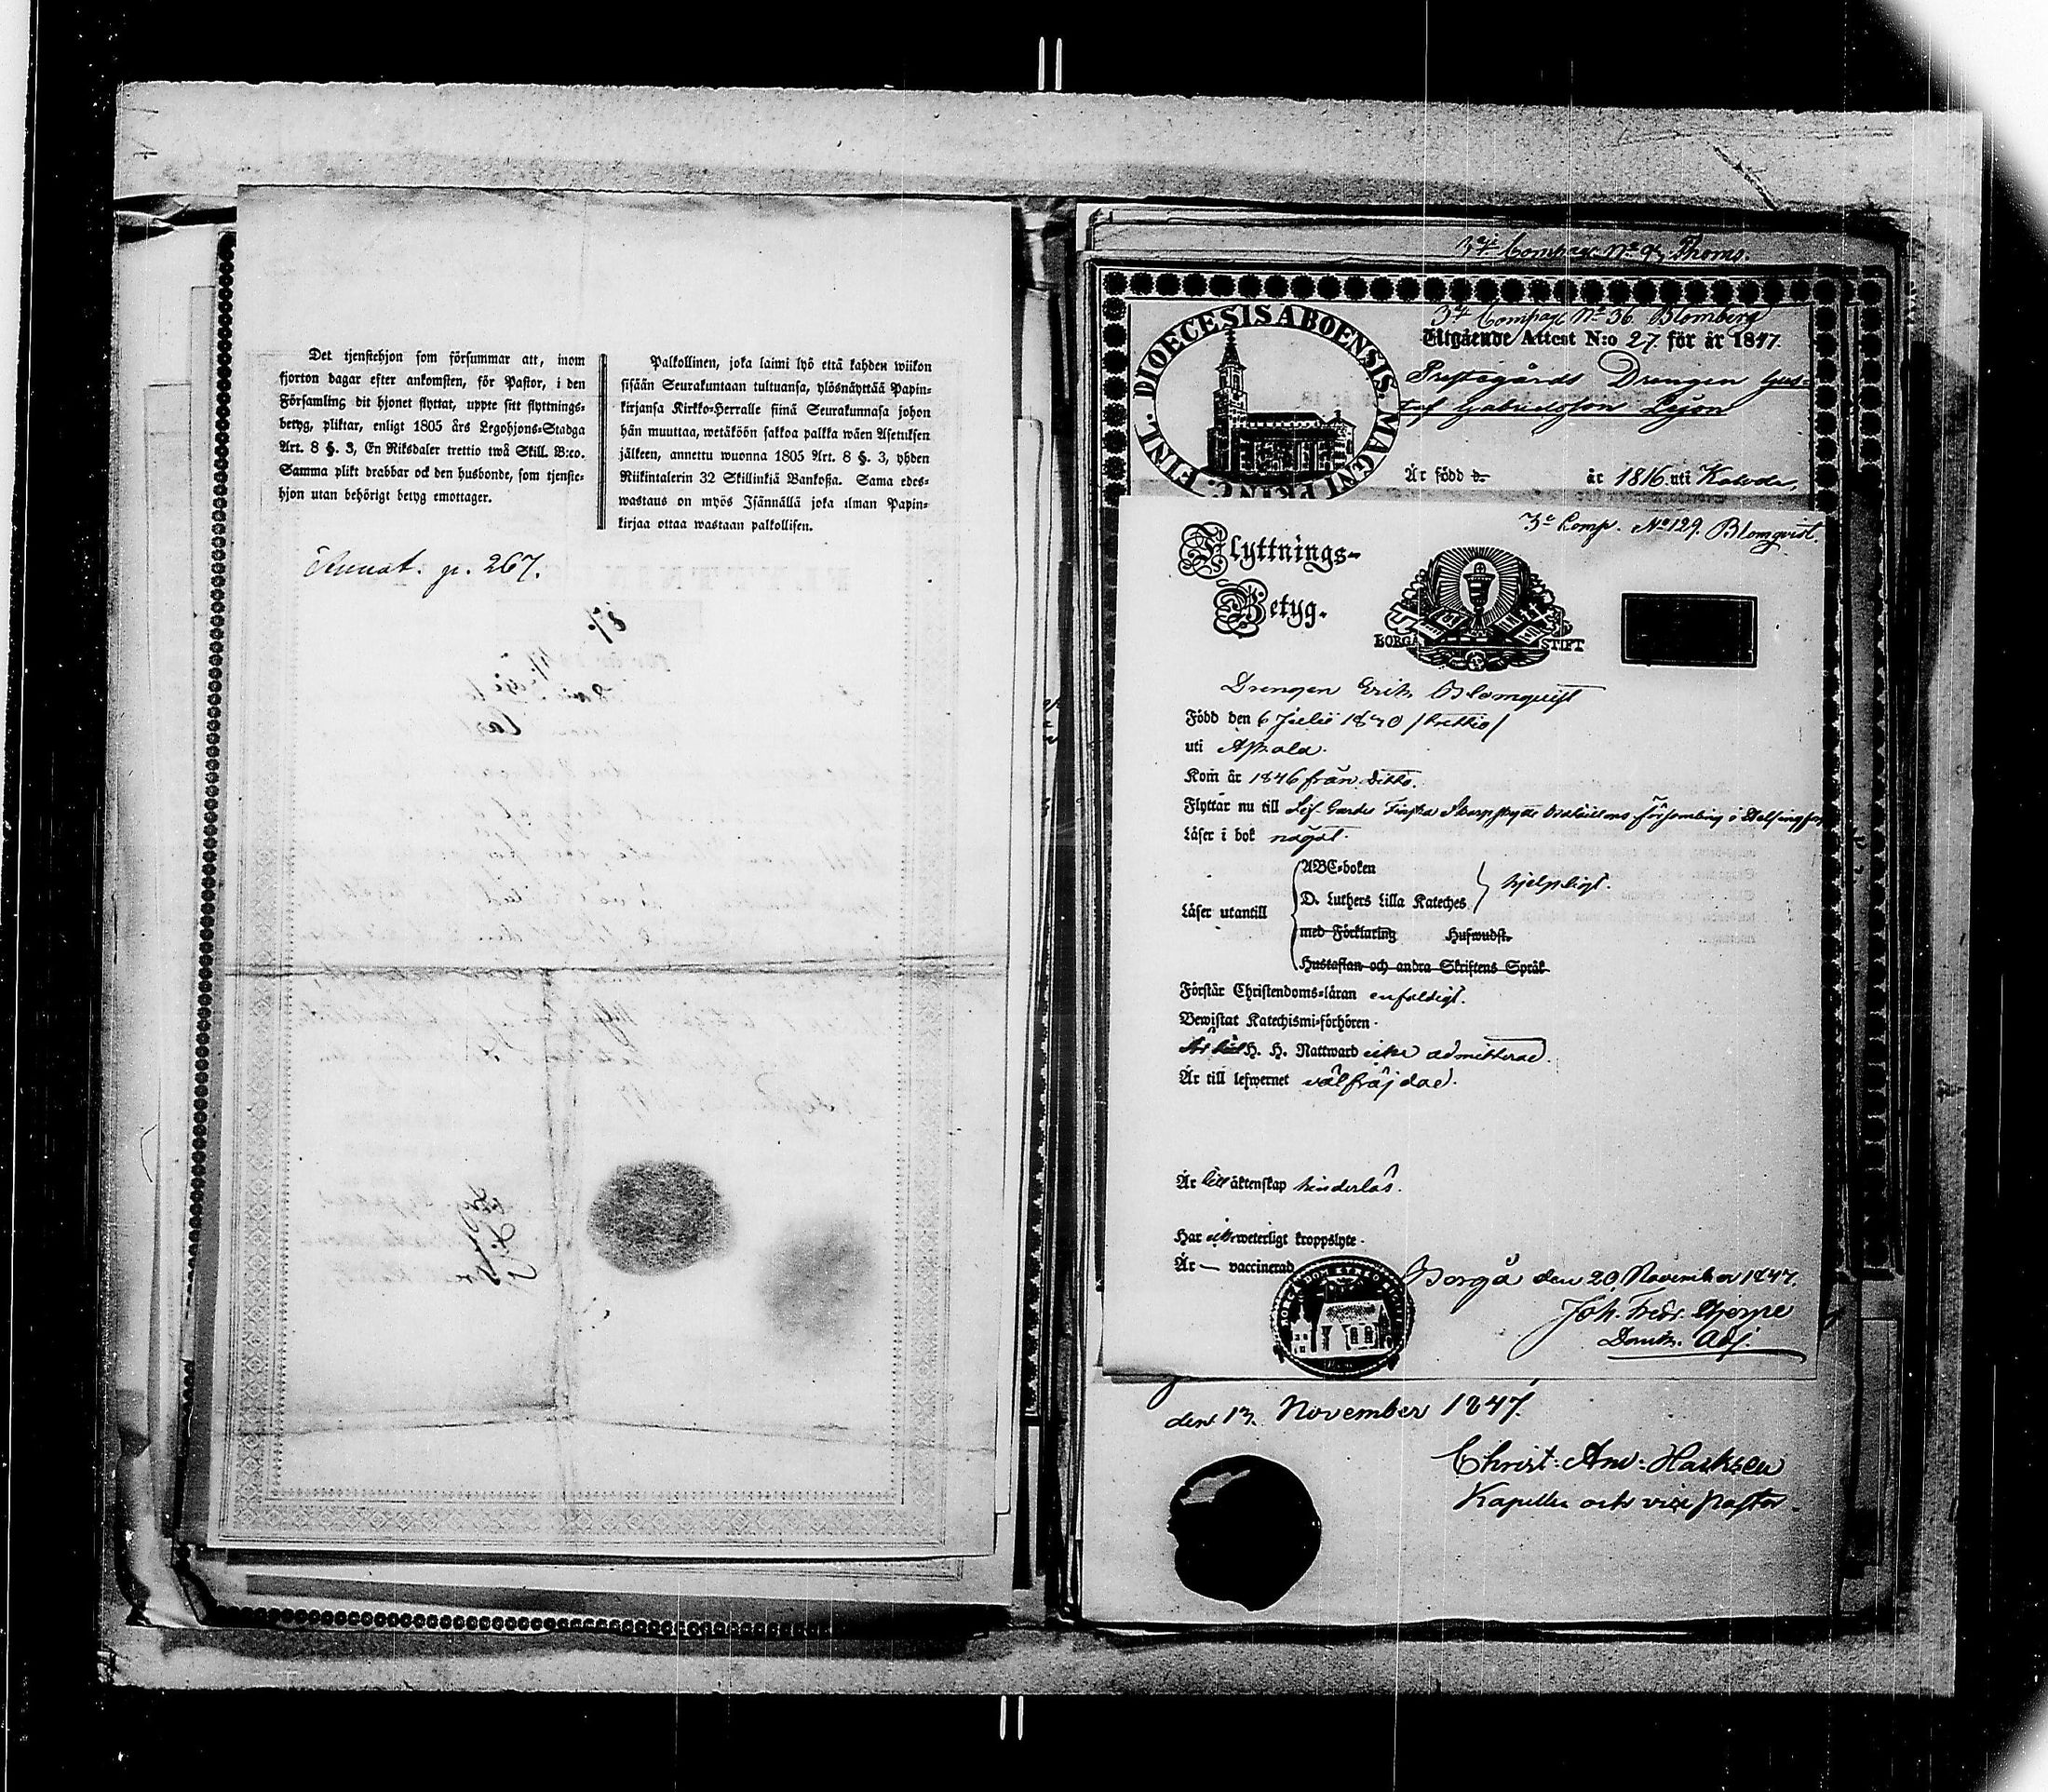 Det tjenstehjon som försummar att, inom
fjorton dagar efter ankomsten, för Pastor, i den
Församling dit hjonet flyttat, uppte sitt flyttnings-
betyg, pliktar, enligt 1805 års Legohjons-Stadga
Art. 8 §. 3, En Riksdaler trettio twå Skill. B:co.
Samma plikt drabbar ock den husbonde, som tjenste-
hjon utan behörigt betyg emottager.
Palkollinen, joka laimi lyö että kahden wiikon
sisään Seurakuntaan tultuansa, ylösnäyttää Papin-
kirjansa Kirkko-Herralle siinä Seurakunnasa johon
hän muuttaa, wetäköön sakkoa palkka wäen Asetuksen
jälkeen, annettu wuonna 1805 Art. 8 §. 3, yhden
Riikintalerin 32 Skillinkiä Bankoßa. Sama edes-
wastaus on myös Isännällä joka ilman Papin-
kirjaa ottaa wastaan palkollisen.
Annot. p. 267.
3dje Compag. No 93 Thoms.
3dje Compag. No 36 Blomberg
DIOECESIS ABOENSIS. MAGNI PRINC. FINL.
Utgående Attest N:o 27 för år 1847.
Prestegårds Drengen Gus-
taf Gabrielsson Lejon
Är född d. år 1816 uti
3e Komp. No 129. Blomqvist.
Flyttnings-
Betyg.
BORGÅ STIFT
Drengen Erik Blomqvist
Född den 6 Julii 1830 /trettio/
uti Askola.
Kom år 1846 från ditto.
Flyttar nu till Lif Gardes Finska Skarpskytte Bataillons församling i Helsingfors
Läser i bok något.
Läser utantill
ABC-boken
D. Luthers Lilla Kateches hjelpligt.
med Förklaring Hufwudst.
Hustaflan och andra Skriftens Språk
Förstår Christendoms-läran enfaldigt.
Bewistat Katechismi-förhören.
Är till H. H. Nattward icke admitterad.
Är till lefwernet välfräjdad.
Är till äktenskap hinderlös.
Har icke weterligt kroppslyte.
Är — vaccinerad
Borgå den 20 November 1847.
Joh. Fredr.
Domk. Adj.
den 13 November 1847.
Christ: And:
Kapellan och vice pastor.